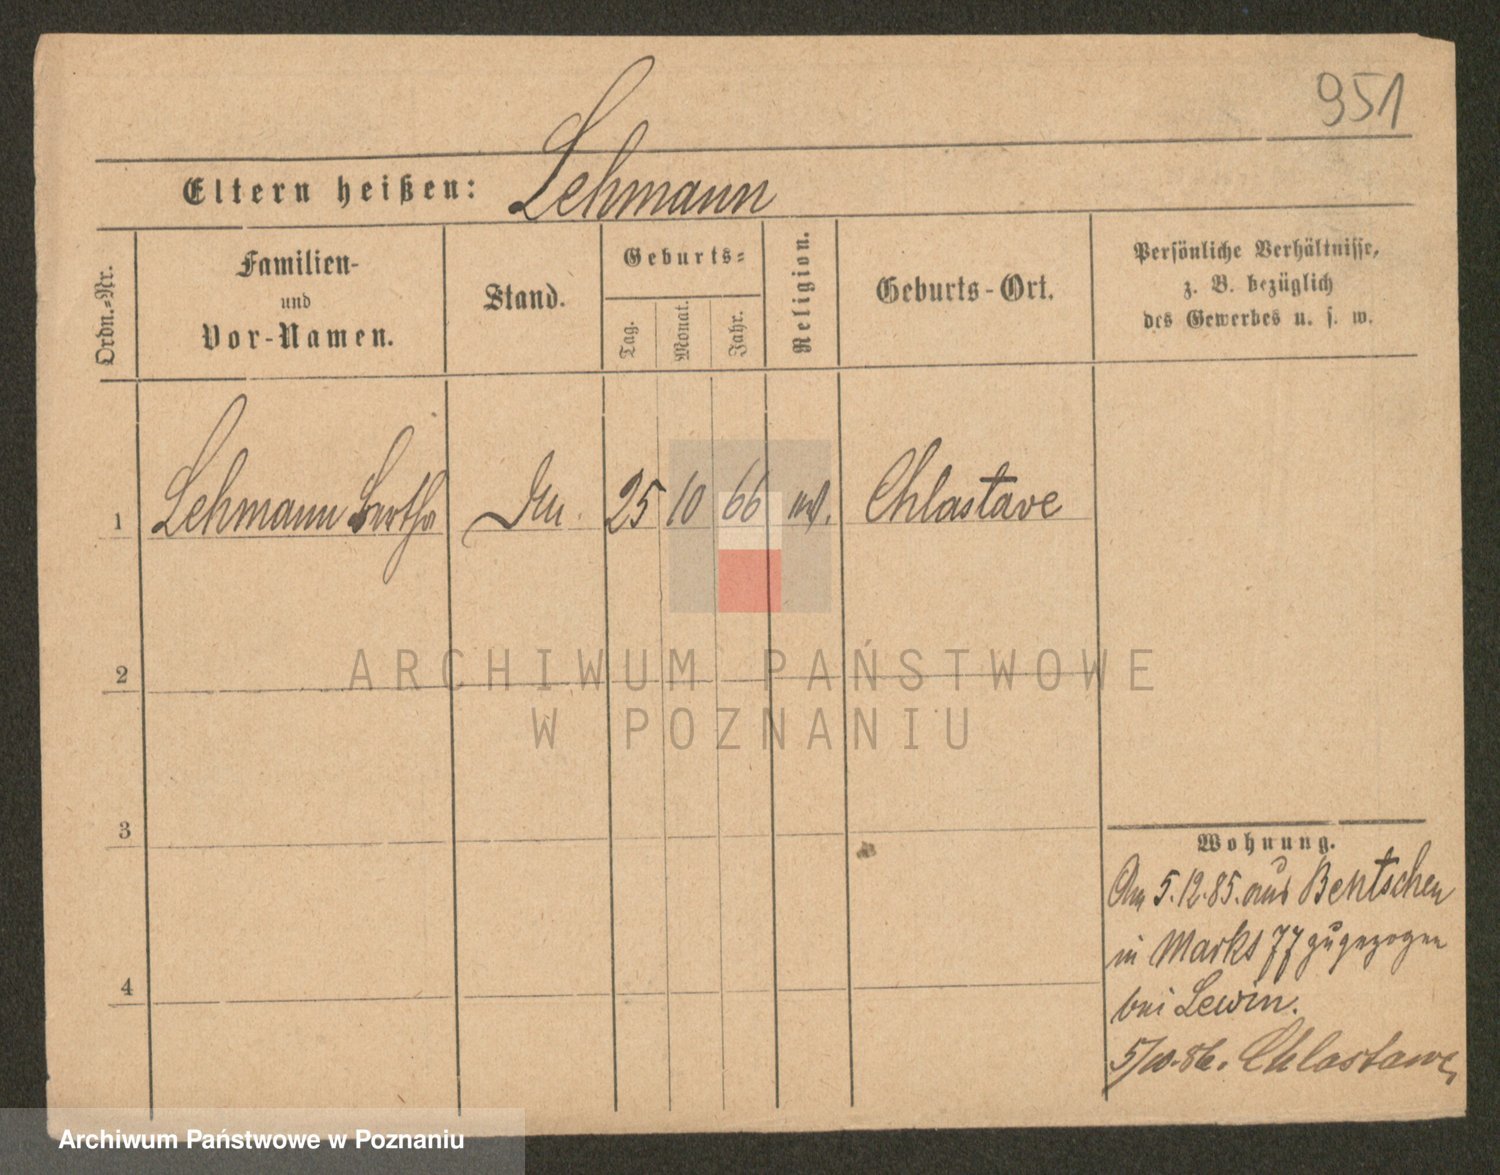 951
Eltern heißen: Lehmann
Ordn.-Nr.
Familien-
und
Vor-Namen.
Stand.
Geburts-
Tag.
Monat.
Jahr.
Religion.
Geburts-Ort.
Persönliche Verhältnisse,
z. B. bezüglich
des Gewerbes u. s. w.
1 Lehmann Bertha 25 10 66 Chlastave
2
ARCHIWUM PAŃSTWOWE
W POZNANIU
3
4
Wohnung.
Am 5.12.85. aus Bentschen
in Markt 77 zugezogen
bei Lewin.
5/10.86. Chlastawe
Archiwum Państwowe w Poznaniu